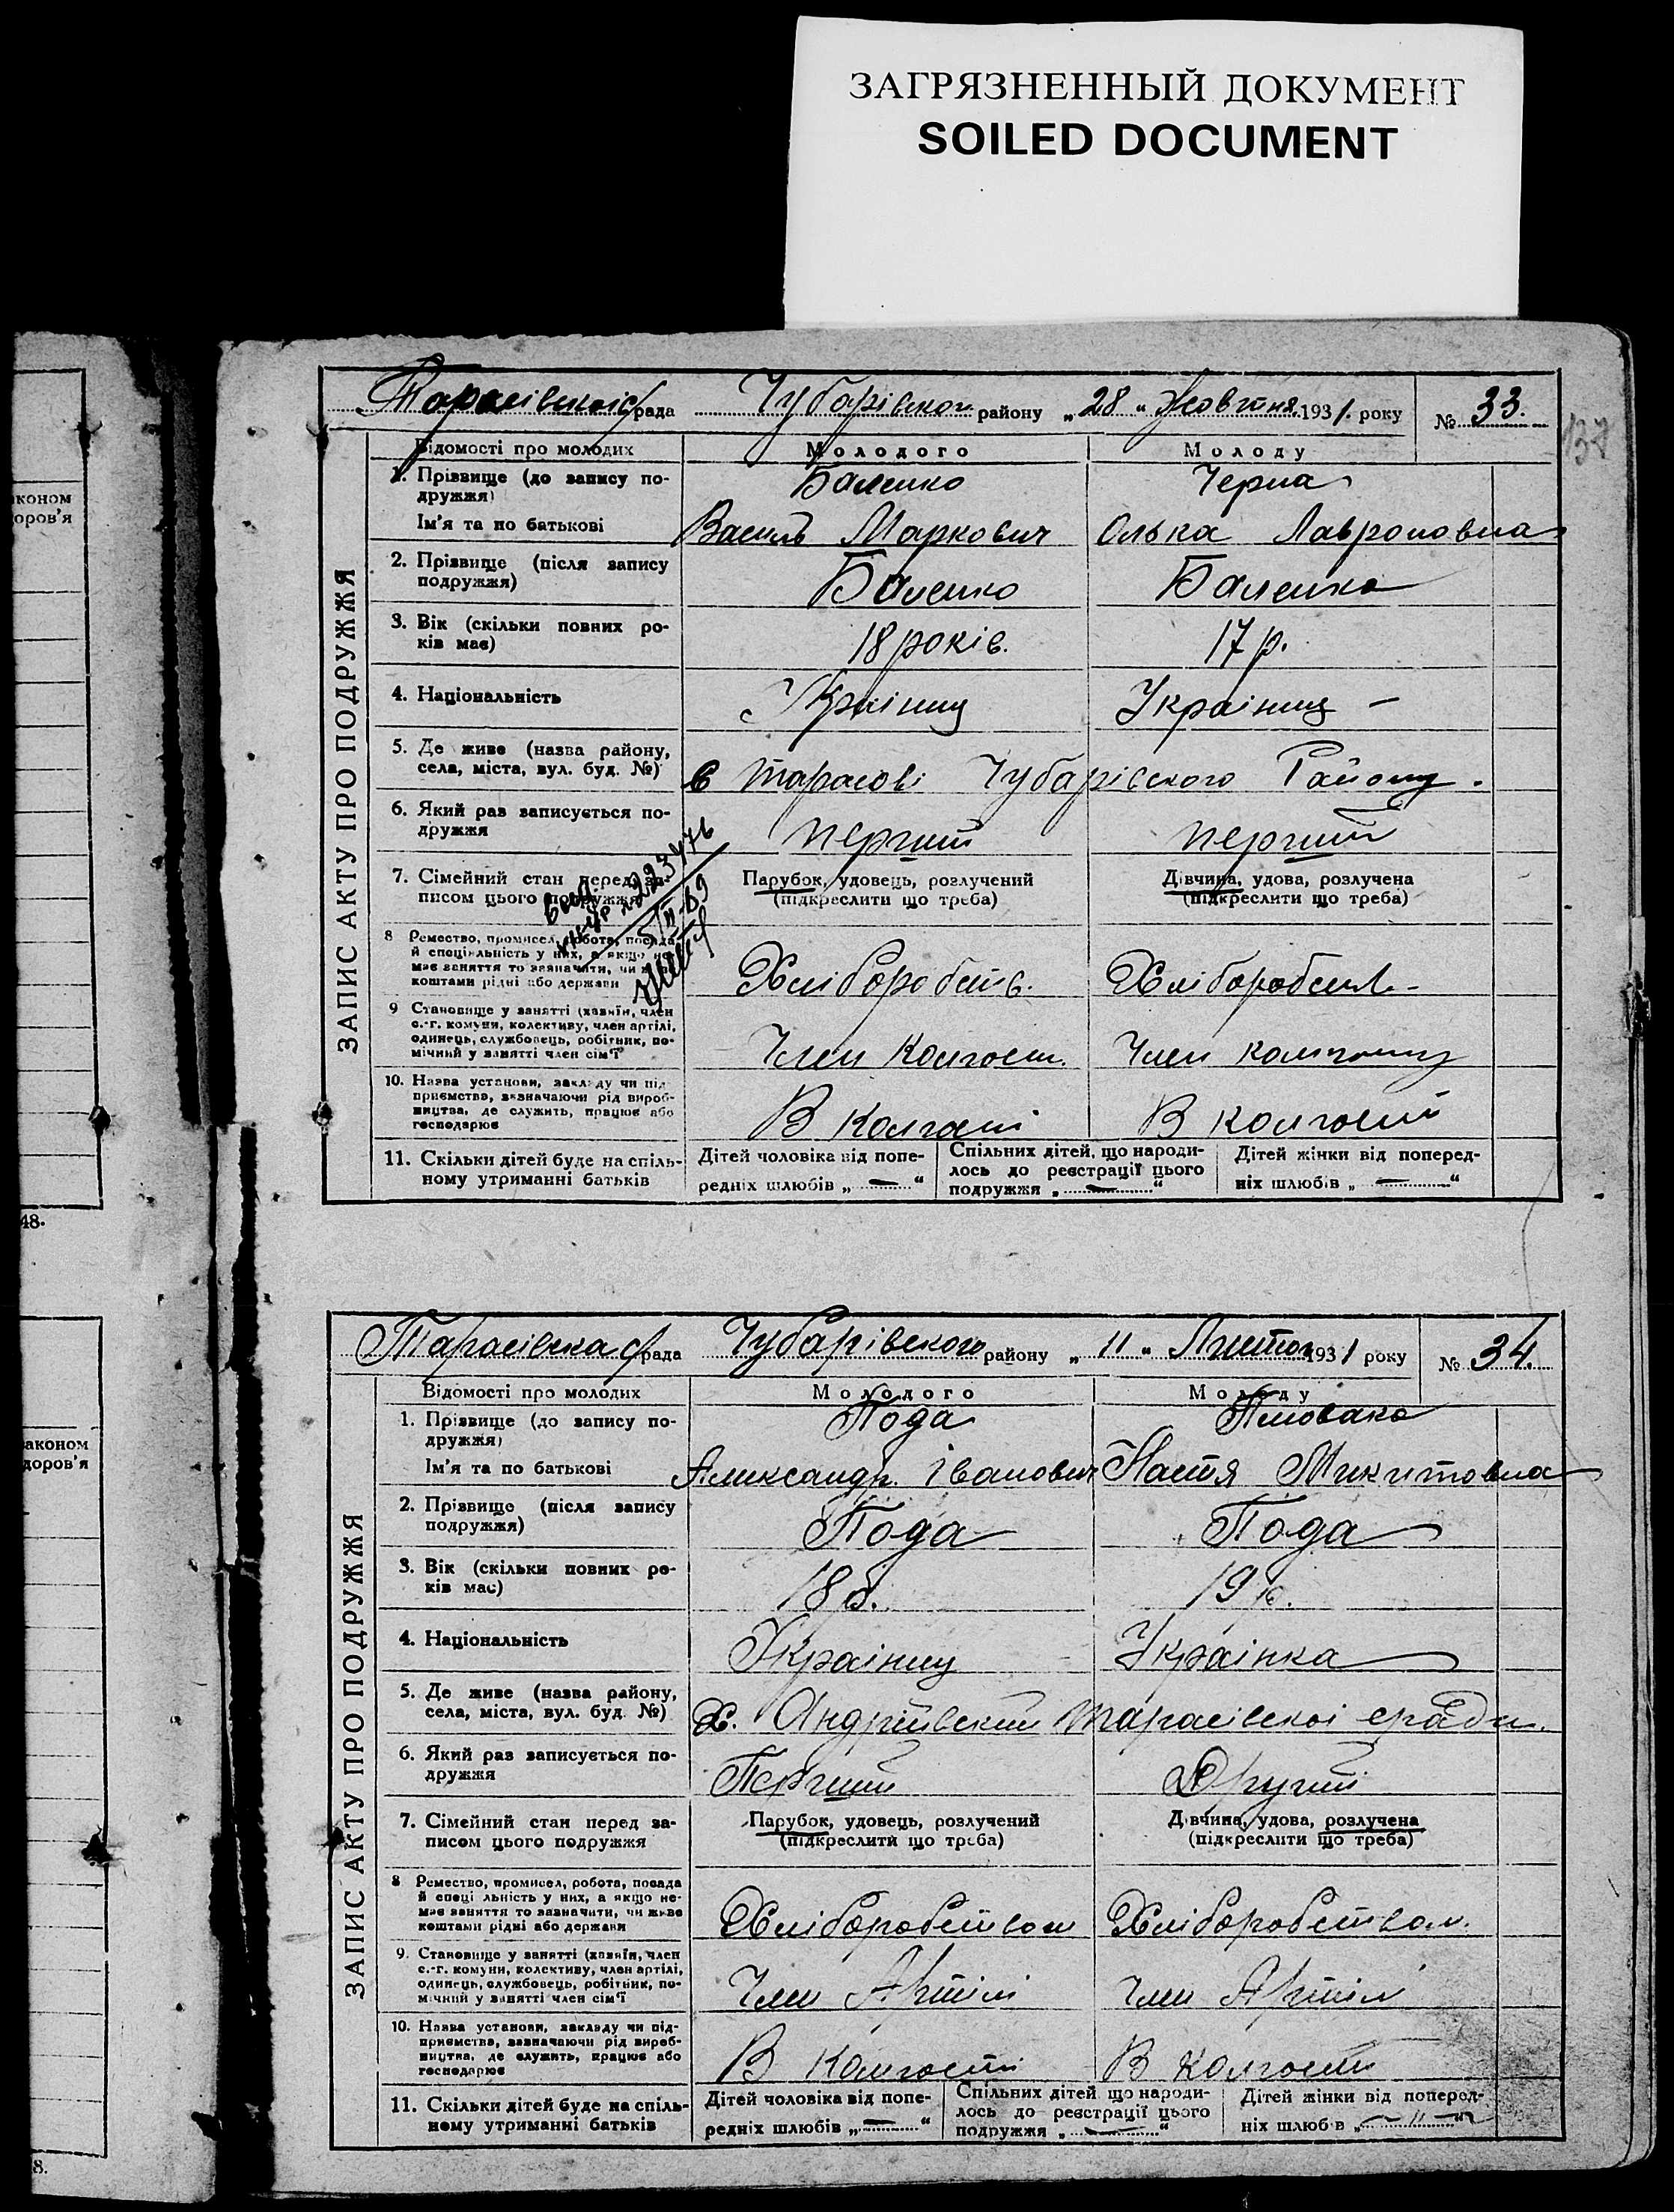 ЗАГРЯЗНЕННЫЙ ДОКУМЕНТ
SOILED DOCUMENT
коном
оров'я
48.
аконом
доров'я
8.
137
ЗАПИС АКТУ ПРО ПОДРУЖЖЯ
рада Чубарівског району „28" Жовтня 1931. року № 33.
Відомості про молодих Молодого Молоду
1. Прізвище (до запису по- Баленко Черна
дружжя)
Ім'я та по батькові Василь Маркович Олька Лавроновна
2. Прізвище (після запису Баленко Баленко
подружжя)
3. Вік (скільки повних ро- 18 років. 17 р.
ків має)
4. Національність Україниц Україниц –
5. Де живе (назва району, в Тарасові Чубарівского Району.
села, міста, вул. буд. №)
6. Який раз записується по- перший перший
дружжя
7. Сімейний стан перед за- Парубок, удовець, розлучений Дівчина, удова, розлучена
писом цього подружжя (підкреслити що треба) (підкреслити що треба)
№ 223476
8 Ремество, промисел, робота, посада
й спеціальність у них, а якщо не-
має заняття то зазначити, чи
коштами рідні або держави Хліборобств. Хліборобств-
9 Становище у занятті (хазяїн, член
с.-г. комуни, колективу, член артілі,
одинець, службовець, робітник, по-
мічний у занятті член сім'ї Член Колгосп. Член колгоспу
10. Назва установи, закладу чи під-
приємства, зазначаючи рід вироб-
ництва, де служить, працює або
господарює В колгоспі В колгоспі
11. Скільки дітей буде на спіль- Дітей чоловіка від попе- Спільних дітей, що народи- Дітей жінки від поперед-
ному утриманні батьків редніх шлюбів „ — " лось до реєстрації цього ніх шлюбів „ — "
подружжя „ — "
ЗАПИС АКТУ ПРО ПОДРУЖЖЯ
Тарасівска с/рада Чубарівского району „11" 1931 року № 34.
Відомості про молодих Молодого Молоду
1. Прізвище (до запису по- Пода
дружжя)
Ім'я та по батькові Александр. Іванович Настя Микитовна
2. Прізвище (після запису Пода Пода
подружжя)
3. Вік (скільки повних ро- 18 19
ків має)
4. Національність Україниц Українка
5. Де живе (назва району, Х. Андріївский Тарасівскоі сради.
села, міста, вул. буд. №)
6. Який раз записується по- Перший Другий
дружжя
7. Сімейний стан перед за- Парубок, удовець, розлучений Дівчина, удова, розлучена
писом цього подружжя (підкреслити що треба) (підкреслити що треба)
8 Ремество, промисел, робота, посада
й спеці льність у них, а якщо не-
має заняття то зазначити, чи живе
коштами рідні або держави Хліборобством Хліборобством.
9. Становище у занятті (хазяїн, член
с.-г. комуни, колективу, член артілі,
одинець, службовець, робітник, по-
мічний у занятті член сім'ї Член Артілі Член Артілі
10. Назва установи, закладу чи під-
приємства, зазначаючи рід вироб-
ництва, де служить, працює або
господарює В колгоспі В колгоспі
11. Скільки дітей буде на спіль- Дітей чоловіка від попе- Спільних дітей що народи- Дітей жінки від поперед-
ному утриманні батьків редніх шлюбів „ — " лось до реєстрації цього ніх шлюб в „ — " — "
подружжя „ — "